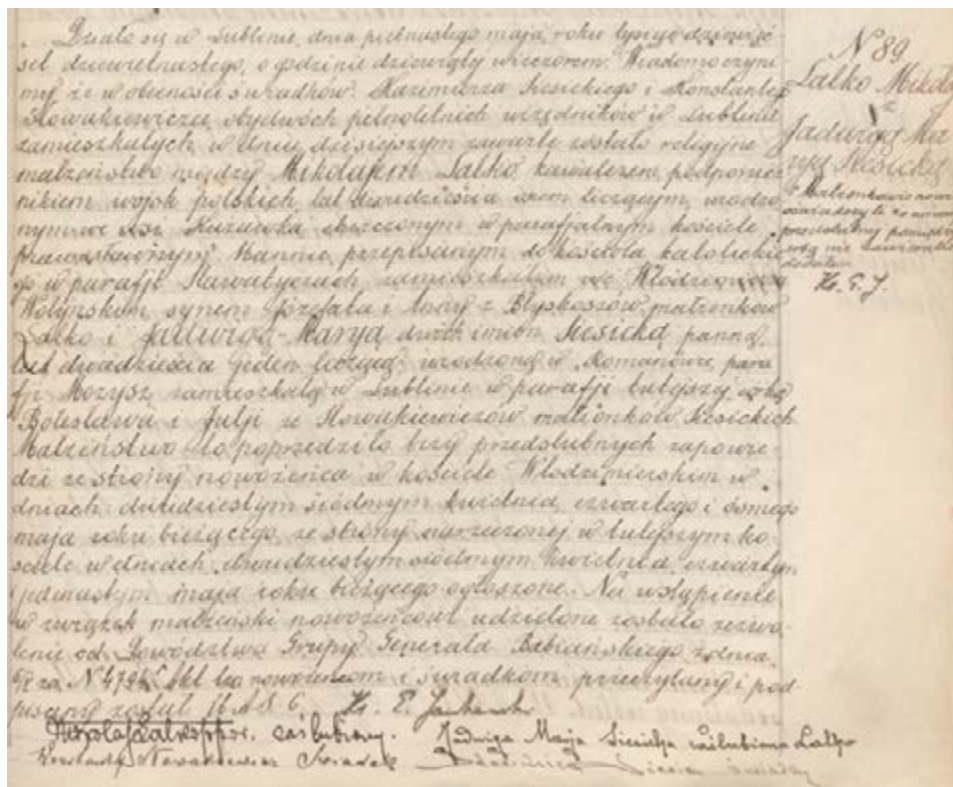 Działo się w Lublinie, dnia piętnastego maja, roku tysiąc dziewięć
set dziewietnastego, o godzinie dziewiątej wieczorem. Wiadomo czyni
my że w obecności świadków: Kazimierza Siesickiego i Konstantego
Nowakiewicza, obydwóch pełnoletnich urzędników w Lublinie
zamieszkałych, w dniu dzisiejszym zawarte zostało religijne
małżeństwo między Mikołajem Lalko kawalerem, podporucz
nikiem wojsk polskich, lat liczącym, urodzo
nym we wsi Kuzawka chrzczonym w parafjalnym kościele
Hannie, przepisanym do kościoła katolickie
go w parafji Sławatyczach zamieszkałym we Włodzimierzu
Wołyńskim synem Józefata i Anny z małżonków
Lalko i Jadwigą-Maryą dwóch imion Siesicką panną,
lat dwadzieścia jeden liczącą urodzoną w Romanowie, para
fji zamieszkałą w Lublinie w parafji tutejszej córką
Bolesława i Julji z Nowakiewiczów małżonków Siesickich
Małżeństwo to poprzedziło trzy przedślubnych zapowie
dzi ze strony nowożeńca w kościele Włodzimierskim w
dniach: dwudziestym siódmym kwietnia, czwartego i ósmego
maja roku bieżącego, ze strony narzeczonej w tutejszym ko-
ściele w dniach: dwudziestym siódmym kwietnia, czwartym
i jedenastym maja roku bieżącego ogłoszone. Na wstąpienie
w związek małżeński nowożeńcowi udzielone zostało zezwo-
lenie od Dowództwa Grupy Generała Babiańskiego
za N 4794 Akt ten nowożeńcom i świadkom przeczytany i pod-
pisany został
Mikołaj Lalko ppor. zaślubiony. Jadwiga Marja Siesicka zaślubiona Lalko
Konstanty Nowakiewicz Świadek
N 89
Lalko Mikołaj
i
Jadwiga Ma
rya Siesicka